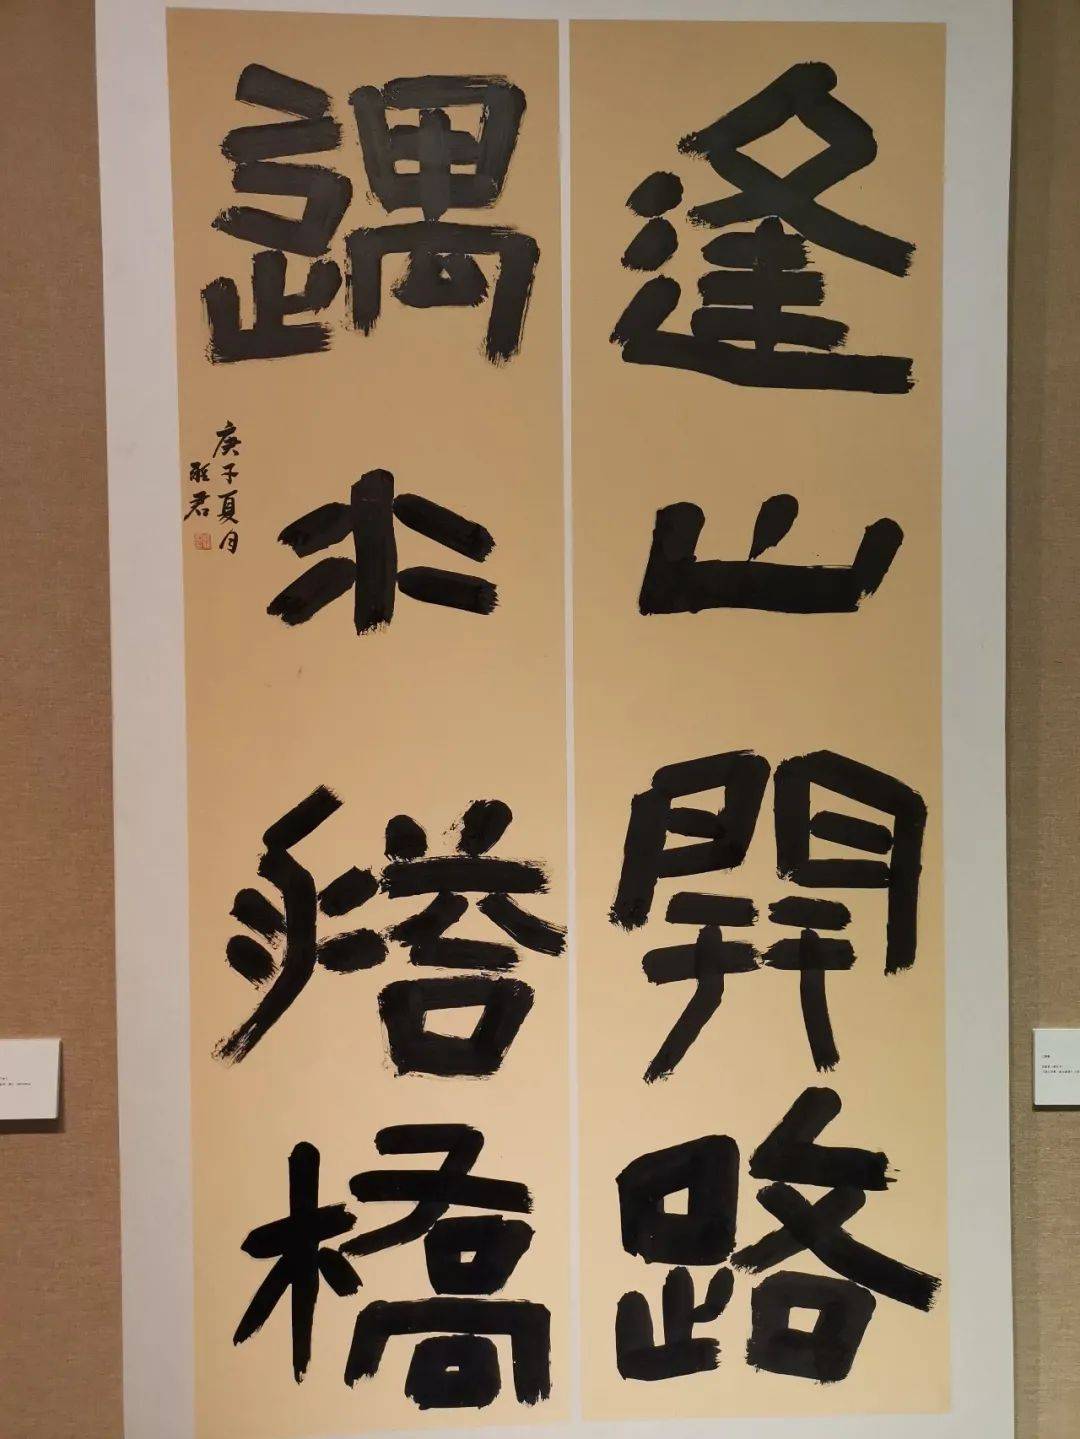 逢山開路
遇水搭橋
庚子夏月